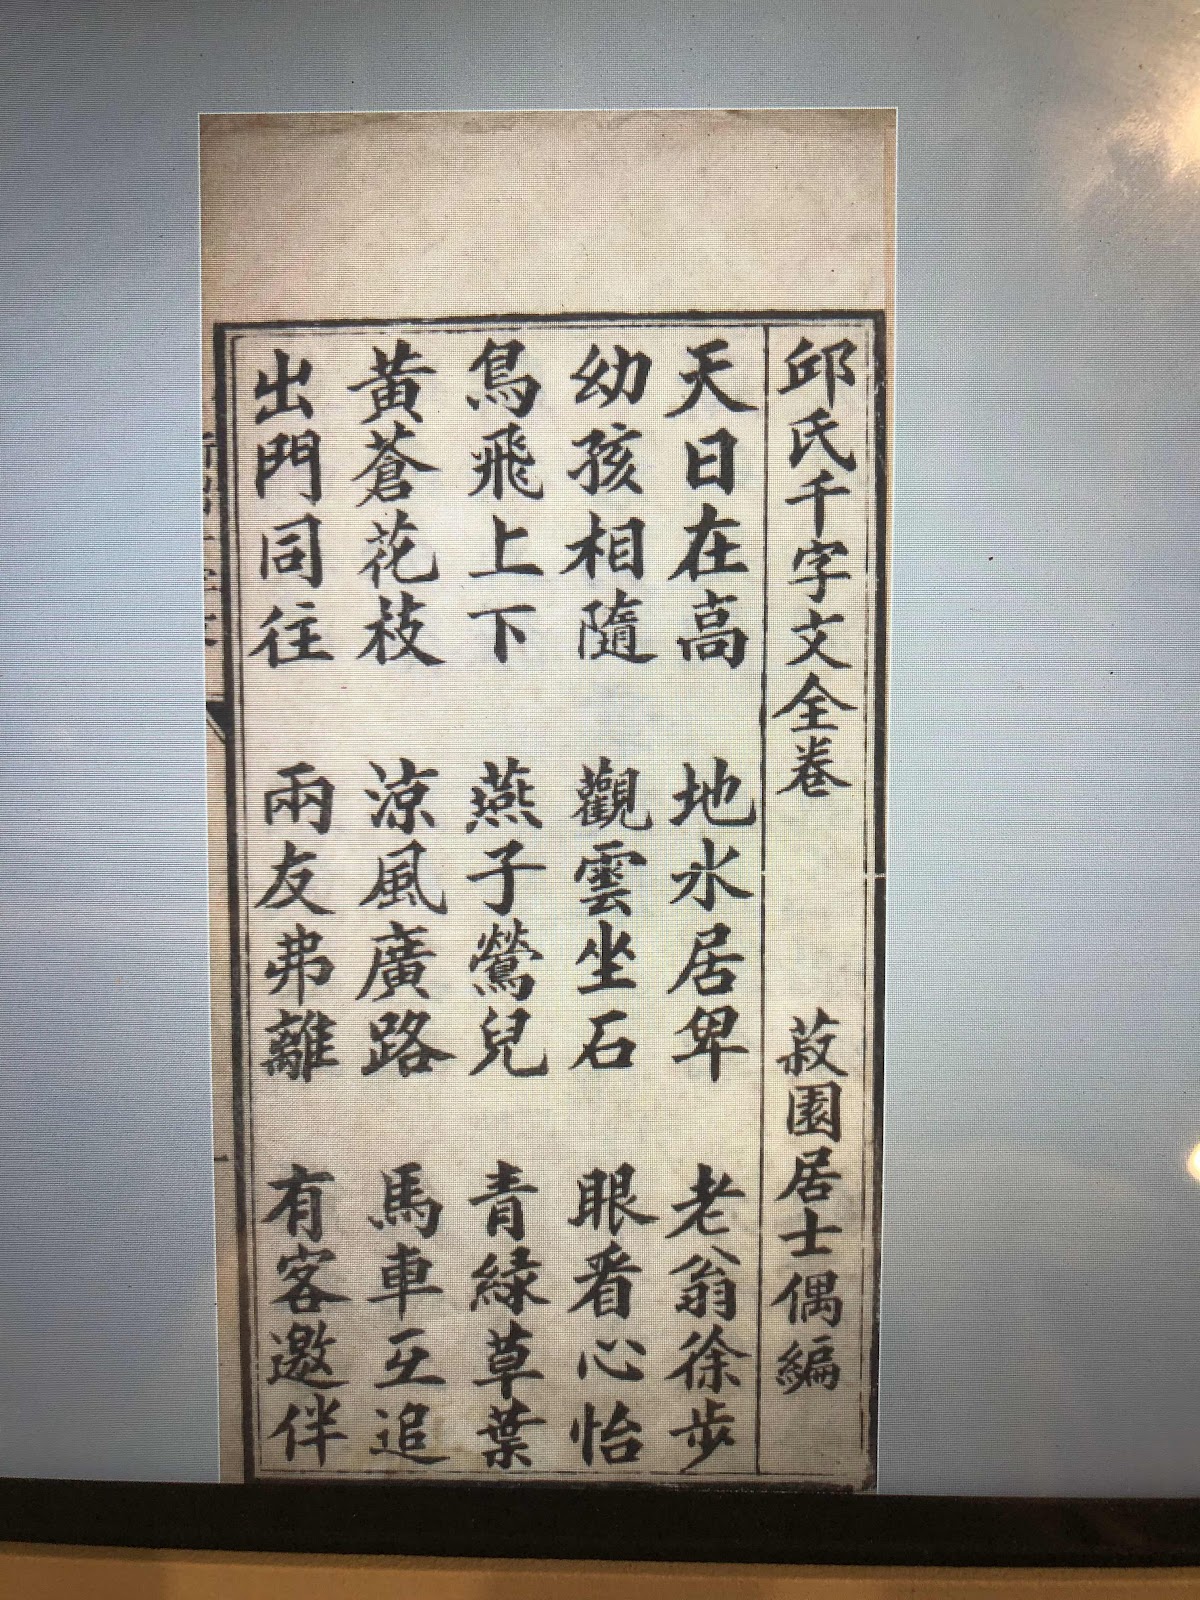 邱氏千字文全卷 菽園居士偶編
天日在高 地水居卑 老翁徐步
幼孩相隨 觀雲坐石 眼看心怡
鳥飛上下 燕子鶯兒 青綠草葉
黃蒼花枝 涼風廣路 馬車互追
出門同往 兩友弗離 有客邀伴